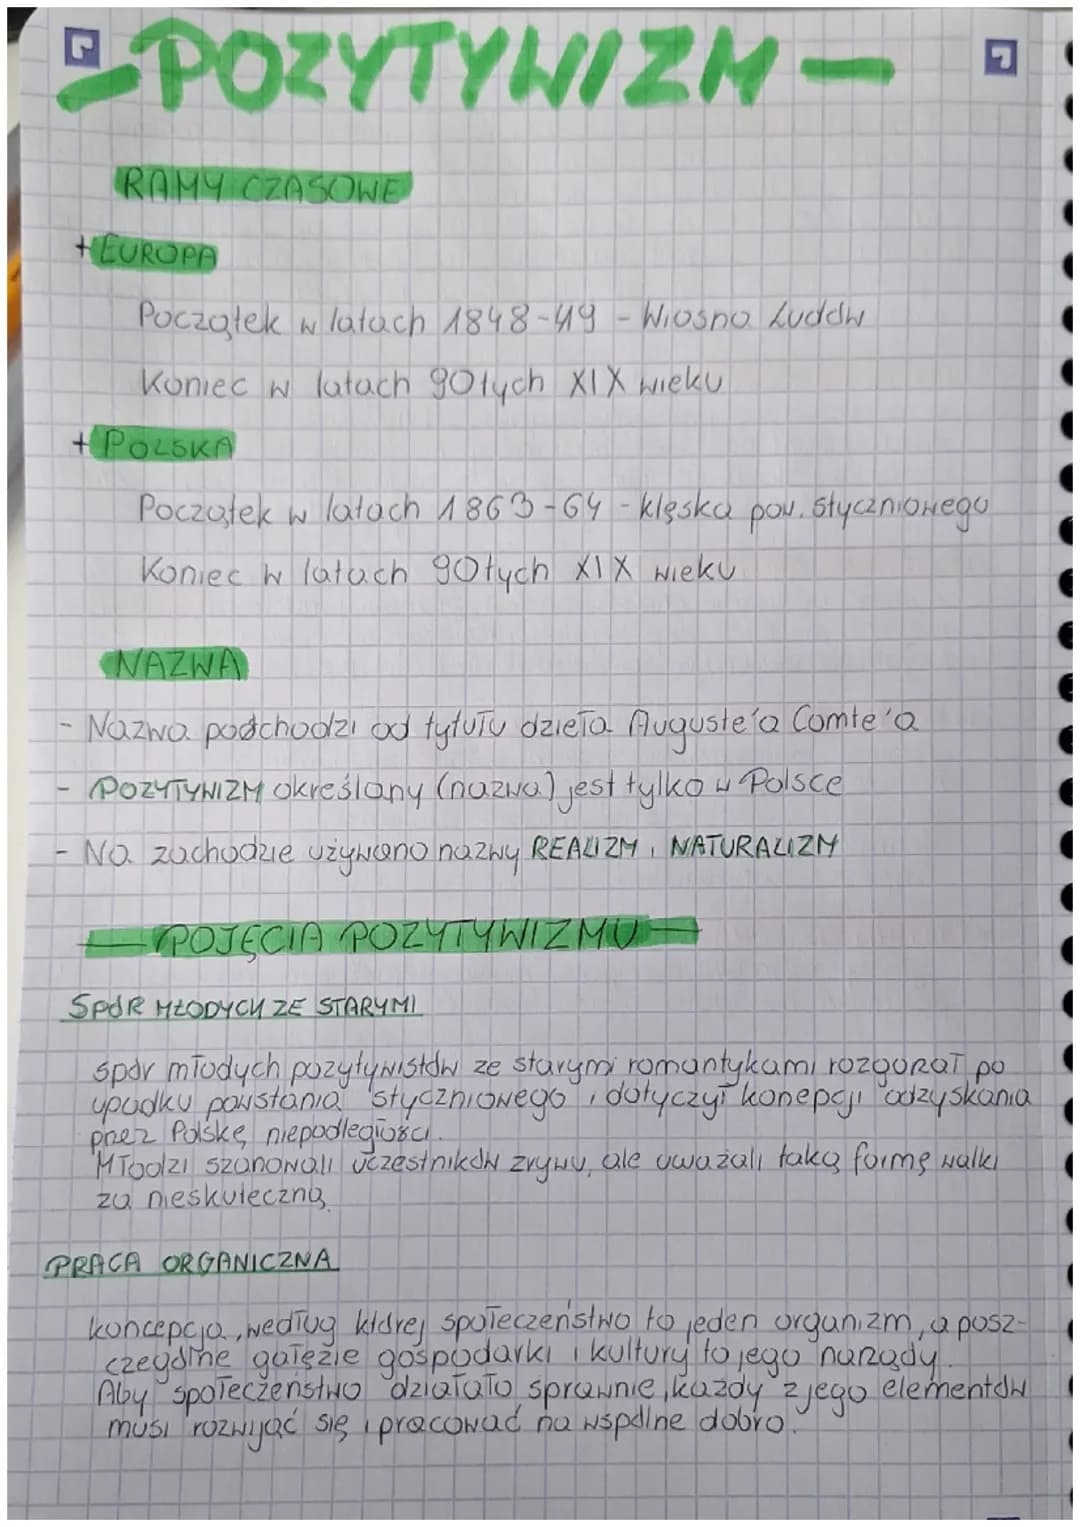 - POZYTYWIZM -
RAMY CZASOWE
+ EUROPA
Początek w latach 1848-49 - Wiosna Ludów
Koniec w latach 90tych XIX wieku
+ POLSKA
Początek w latach 1863-64 - klęska pow. styczniowego
Koniec w latach 90tych XIX wieku
NAZWA
- Nazwa podchodzi od tytułu dzieła Auguste'a Comte'a
- POZYTYWIZM określany (nazwa) jest tylko w Polsce
- Na zachodzie używano nazwy REALIZM i NATURALIZM
- POJĘCIA POZYTYWIZMU -
SPÓR MŁODYCH ZE STARYMI
spór młodych pozytywistów ze starymi romantykami rozgorzał po
upadku powstania styczniowego i dotyczył konepcji odzyskania
przez Polskę niepodległości.
Młodzi szanowali uczestników zrywu, ale uważali taką formę walki
za nieskuteczną
PRACA ORGANICZNA
koncepcja, według której społeczeństwo to jeden organizm, a posz-
czególne gałęzie gospodarki i kultury to jego narządy.
Aby społeczeństwo działało sprawnie, każdy z jego elementów
musi rozwijać się i pracować na wspólne dobro.